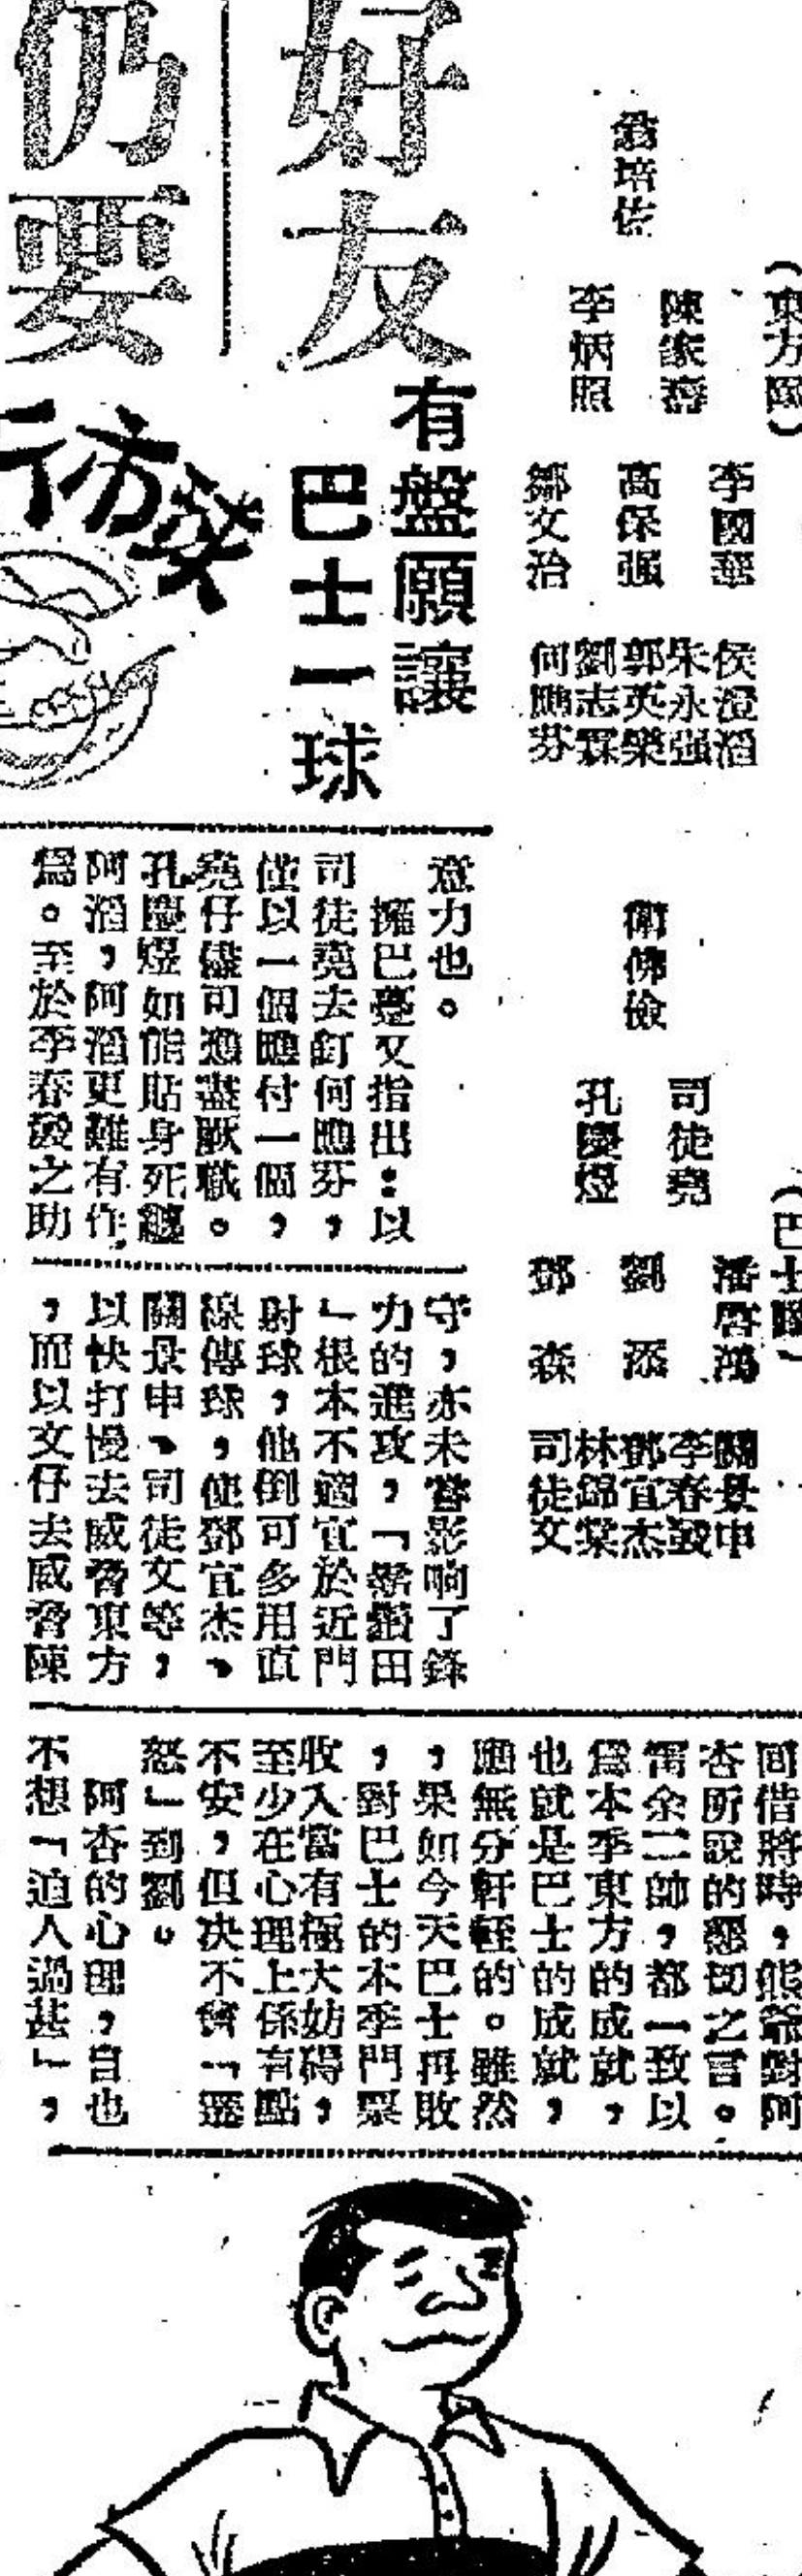 好友
仍要
有盤願讓
巴士一球
(東方隊)
翁培佐
陳家齊
李炳照
李國華
高保強
鄒文治
侯澄滔
朱永強
郭英樂
劉志霖
何應芬
(巴士隊)
衛佛儉
司徒堯
孔慶煜
潘啓鴻
劉添
鄧森
關景申
李春發
鄧宜杰
林錦棠
司徒文
意力也。
擁巴躉又指出：以
司徒堯去釘何應芬，
僅以一個應付一個，
堯仔儘可適盡厥職。
孔慶煜如能貼身死纏
阿滔，阿滔更難有作
爲。至於李春發之助
守，亦未嘗影响了鋒
力的進攻，「鬍鬚田
」根本不適宜於近門
射球，他倒可多用直
線傳球，使鄧宜杰、
關景申、司徒文等，
以快打慢去威脅東方
，而以文仔去威脅陳
間借將時，熊爺對阿
杏所說的懇切之言。
雷余二帥，都一致以
爲本季東方的成就，
也就是巴士的成就，
應無分軒輊的。雖然
，果如今天巴士再敗
，對巴士的本季門票
收入當有極大妨碍，
至少在心理上係有點
不安，但决不會「遷
怒」到劉。
阿杏的心理，自也
不想「迫人過甚」，